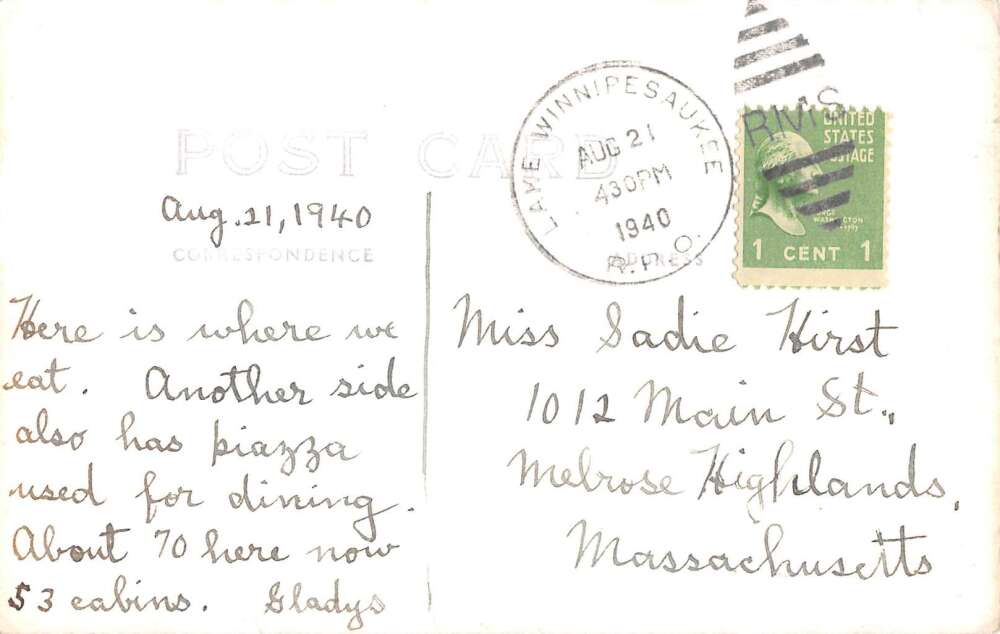 POST CARD
Aug. 21, 1940
CORRESPONDENCE
Here is where we
eat. Another side
also has piazza
used for dining.
About 70 here now
53 cabins. Gladys
LAKE WINNIPESAUKEE
AUG 21
430PM
1940
R.P.O.
ADDRESS
RMS
UNITED
STATES
POSTAGE
WASHINGTON
1 CENT 1
Miss Sadie Hirst
1012 Main St.,
Melrose Highlands,
Massachusetts